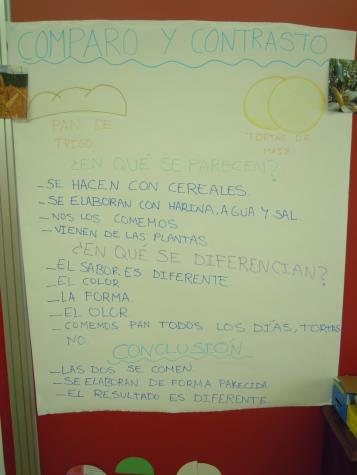 COMPARO Y CONTRASTO
PAN DE TRIGO
TORTAS DE MAÍZ
¿EN QUÉ SE PARECEN?
_SE HACEN CON CEREALES.
_SE ELABORAN CON HARINA, AGUA Y SAL.
_NOS LOS COMEMOS.
_VIENEN DE LAS PLANTAS.
¿EN QUÉ SE DIFERENCIAN?
_EL SABOR ES DIFERENTE.
_EL COLOR
_LA FORMA.
_EL OLOR
_COMEMOS PAN TODOS LOS DÍAS, TORTAS
NO.
CONCLUSIÓN
_LAS DOS SE COMEN.
_SE ELABORAN DE FORMA PARECIDA
_EL RESULTADO ES DIFERENTE.